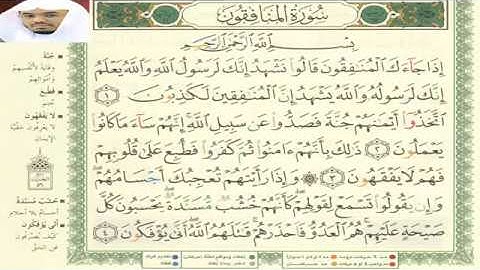 سورة المنافقون
بسم الله الرحمن الرحيم
إِذَا جَاءَكَ الْمُنَافِقُونَ قَالُوا نَشْهَدُ إِنَّكَ لَرَسُولُ اللَّهِ وَاللَّهُ يَعْلَمُ
إِنَّكَ لَرَسُولُهُ وَاللَّهُ يَشْهَدُ إِنَّ الْمُنَافِقِينَ لَكَاذِبُونَ ١
اتَّخَذُوا أَيْمَانَهُمْ جُنَّةً فَصَدُّوا عَن سَبِيلِ اللَّهِ إِنَّهُمْ سَاءَ مَا كَانُوا
يَعْمَلُونَ ٢ ذَٰلِكَ بِأَنَّهُمْ آمَنُوا ثُمَّ كَفَرُوا فَطُبِعَ عَلَىٰ قُلُوبِهِمْ
فَهُمْ لَا يَفْقَهُونَ ٣ وَإِذَا رَأَيْتَهُمْ تُعْجِبُكَ أَجْسَامُهُمْ
وَإِن يَقُولُوا تَسْمَعْ لِقَوْلِهِمْ كَأَنَّهُمْ خُشُبٌ مُّسَنَّدَةٌ يَحْسَبُونَ كُلَّ
صَيْحَةٍ عَلَيْهِمْ هُمُ الْعَدُوُّ فَاحْذَرْهُمْ قَاتَلَهُمُ اللَّهُ أَنَّىٰ يُؤْفَكُونَ ٤
جُنَّةً
وقاية لأنفسهم
وأموالهم
فَطُبِعَ
لا يَفْقَهُونَ
لا يعرفون حقيقة
الإيمان
خُشُبٌ مُسَنَّدَةٌ
أجسام بلا أحلام
أَنَّى يُؤْفَكُونَ
عن الحق